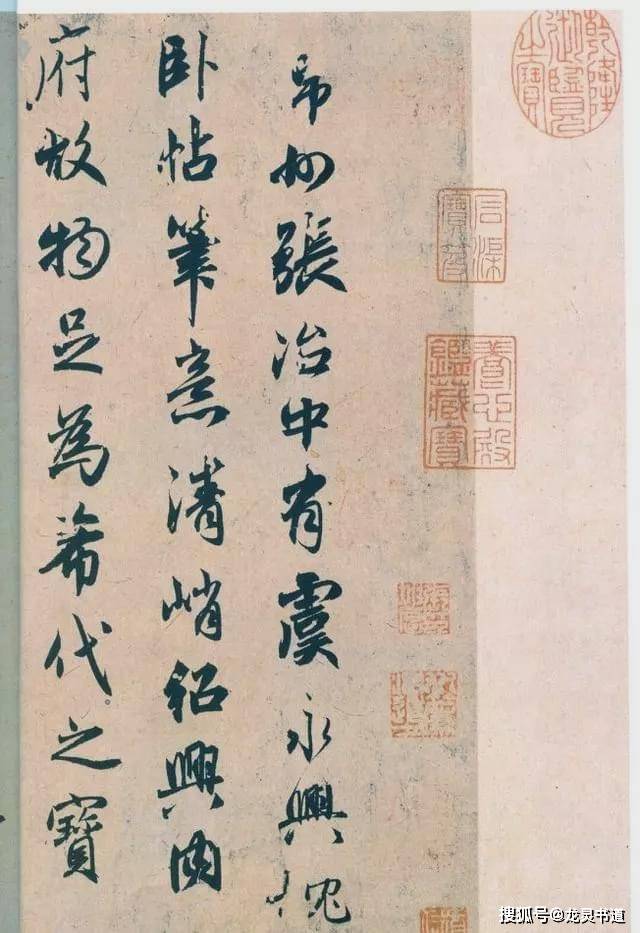 乾隆御覽之寶
石渠寶笈
養心殿鑑藏寶
州張治中有虞永興枕
卧帖筆意清峭紹興内
府故物足為希代之寶
搜狐号@龙灵书道